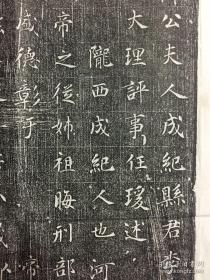 公夫人成紀縣君
大理評事任瑗述
隴西成紀人也河
帝之從姉祖晦刑部
盛德彰于 帝